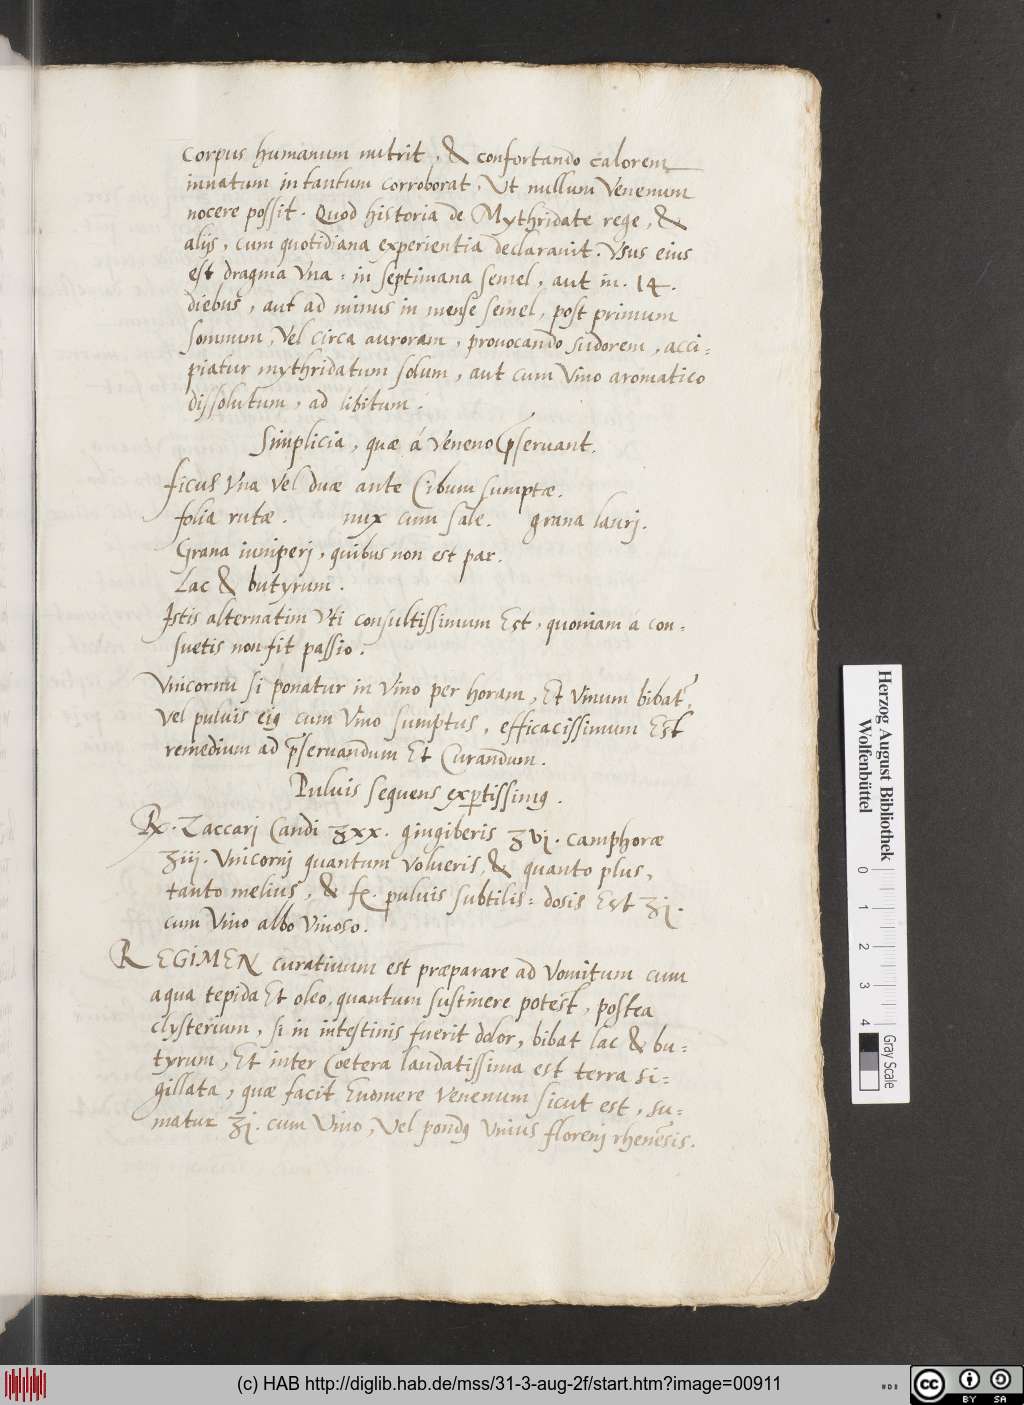 corpus humanum nutrit, & confortando calorem
innatum in tantum corroborat, Vt nullum Venenum
nocere possit. Quod historia de Mythridate rege, &
alijs, cum quotidiana experientia declarauit. Vsus eius
est dragma Vna: in septimana semel, aut in. 14.
diebus, aut ad minus in mense semel, post primum
somnum, Vel circa auroram, prouocando sudorem, acci=
piatur mythridatum solum, aut cum Vino aromatico
dissolutum, ad libitum.
Simplicia, quæ á Veneno p̃seruant.
ficus Vna Vel duæ ante Cibum sumptæ.
folia rutæ. nux cum sale. grana laurj.
Grana iuniperj, quibus non est par.
Lac & butyrum.
Istis alternatim Vti consultissimum Est, quoniam á con=
suetis non fit passio.
Vnicornu si ponatur in Vino per horam, Et Vinum bibat᷑,
Vel puluis eiꝰ cum Vino sumptus, efficacissimum Est
remedium ad p̃seruandum Et Curandum.
Puluis sequens exꝑtissimꝰ.
℞. Zaccarj Candi ʒxx. gingiberis ʒvj. camphoræ
ʒiij. Vnicornj quantum volueris, & quanto plus,
tanto melius, & f. puluis subtilis: dosis Est ʒj.
cum Vino albo Vinoso.
REGIMEN curatiuum est præparare ad Vomitum cum
aqua tepida Et oleo, quantum sustinere potest, postea
clysterium, si in intestinis fuerit dolor, bibat lac & bu=
tyrum, Et inter Cœtera laudatissima est terra si=
gillata, quæ facit Euomere Venenum sicut est, su=
matur ʒj. cum Vino, Vel pondꝰ Vnius florenj rhenesis.
Herzog August Bibliothek
Wolfenbüttel
0 1 2 3 4
Gray Scale
(c) HAB http://diglib.hab.de/mss/31-3-aug-2f/start.htm?image=00911
cc BY SA